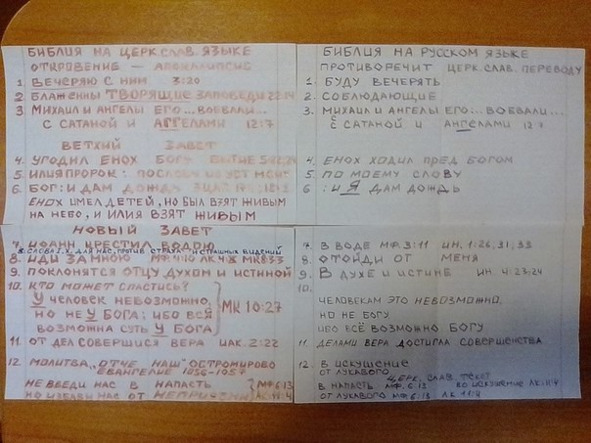 БИБЛИЯ НА ЦЕРК. СЛАВ. ЯЗЫКЕ
ОТКРОВЕНИЕ – АПОКАЛИПСИС
1 ВЕЧЕРЯЮ С НИМ 3:20
2 БЛАЖЕННЫ ТВОРЯЩИЕ ЗАПОВЕДИ 22:14
3 МИХАИЛ И АНГЕЛЫ ЕГО... ВОЕВАЛИ...
С САТАНОЙ И АГГЕЛАМИ 12:7
ВЕТХИЙ ЗАВЕТ
4. УГОДИЛ ЕНОХ БОГУ БЫТИЕ
5. ИЛИЯ ПРОРОК:
6. БОГ: И ДАМ ДОЖДЬ
ЕНОХ ИМЕЛ ДЕТЕЙ, НО БЫЛ ВЗЯТ ЖИВЫМ
НА НЕБО, И ИЛИЯ ВЗЯТ ЖИВЫМ
НОВЫЙ ЗАВЕТ
7. ИОАНН КРЕСТИЛ ВОДОЮ
8. ИДИ ЗА МНОЮ МФ 4:10 ЛК 4:8 МК 8:33
9. ПОКЛОНЯТСЯ ОТЦУ ДУХОМ И ИСТИНОЙ
10. КТО МОЖЕТ СПАСТИСЬ?
У ЧЕЛОВЕК НЕВОЗМОЖНО,
НО НЕ У БОГА: ИБО ВСЯ
ВОЗМОЖНА СУТЬ У БОГА
МК 10:27
11 ОТ ДЕЛ СОВЕРШИСЯ ВЕРА ИАК. 2:22
12 МОЛИТВА „ОТЧЕ НАШ" ОСТРОМИРОВО
ЕВАНГЕЛИЕ 1056-1057
НЕ ВВЕДИ НАС В НАПАСТЬ МФ 6:13
НО ИЗБАВИ НАС ОТ НЕПРИЯЗНИ ЛК 11:4
БИБЛИЯ НА РУССКОМ ЯЗЫКЕ
ПРОТИВОРЕЧИТ ЦЕРК. СЛАВ. ПЕРЕВОДУ
1. БУДУ ВЕЧЕРЯТЬ
2. СОБЛЮДАЮЩИЕ
3. МИХАИЛ И АНГЕЛЫ ЕГО... ВОЕВАЛИ...
С САТАНОЙ И АНГЕЛАМИ 12:7
4. ЕНОХ ХОДИЛ ПРЕД БОГОМ
5. ПО МОЕМУ СЛОВУ
6 : И Я ДАМ ДОЖДЬ
7. В ВОДЕ МФ 3:11 ИН. 1:26,31,33
8. ОТОЙДИ ОТ МЕНЯ
9. В ДУХЕ И ИСТИНЕ ИН 4:23,24
10.
ЧЕЛОВЕКАМ ЭТО НЕВОЗМОЖНО,
НО НЕ БОГУ
ИБО ВСЁ ВОЗМОЖНО БОГУ
11 ДЕЛАМИ ВЕРА ДОСТИГЛА СОВЕРШЕНСТВА
12. В ИСКУШЕНИЕ
ОТ ЛУКАВОГО
ЦЕРК. СЛАВ. ТЕКСТ
В НАПАСТЬ МФ. 6:13 ВО ИСКУШЕНИЕ ЛК 11:4
ОТ ЛУКАВОГО МФ 6:13 ЛК 11:4